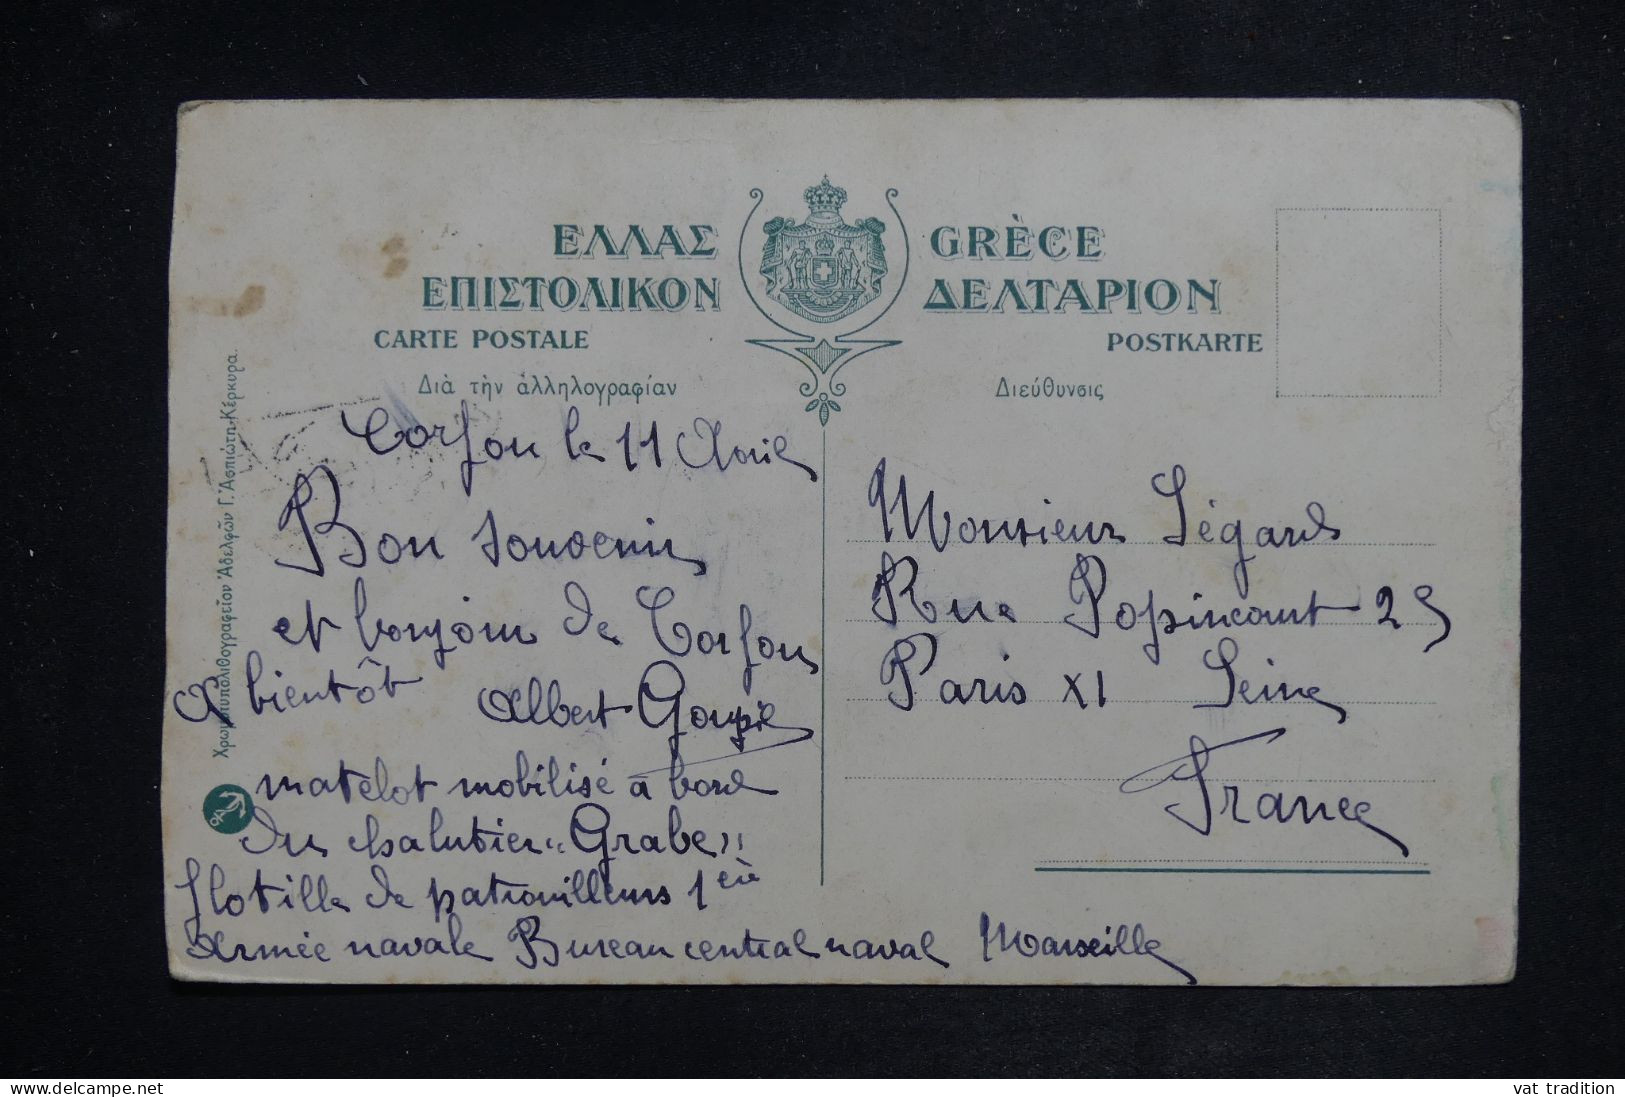 ΕΛΛΑΣ GRÈCE
ΕΠΙΣΤΟΛΙΚΟΝ ΔΕΛΤΑΡΙΟΝ
CARTE POSTALE POSTKARTE
Διὰ τὴν ἀλληλογραφίαν Διεύθυνσις
Χρωμοτυπολιθογραφεῖον Ἀδελφῶν Γ. Ἀσπιώτη-Κέρκυρα.
Corfou le 11 Avril
Bon souvenir
et bonjour de Corfou
A bientôt Albert Goupil
matelot mobilisé à bord
du chalutier "Grabe"
flotille de patrouilleurs 1ère
Armée navale Bureau central naval Marseille
Monsieur Ségard
Rue Popincourt 25
Paris XI Seine
France
www.delcampe.net
vat tradition